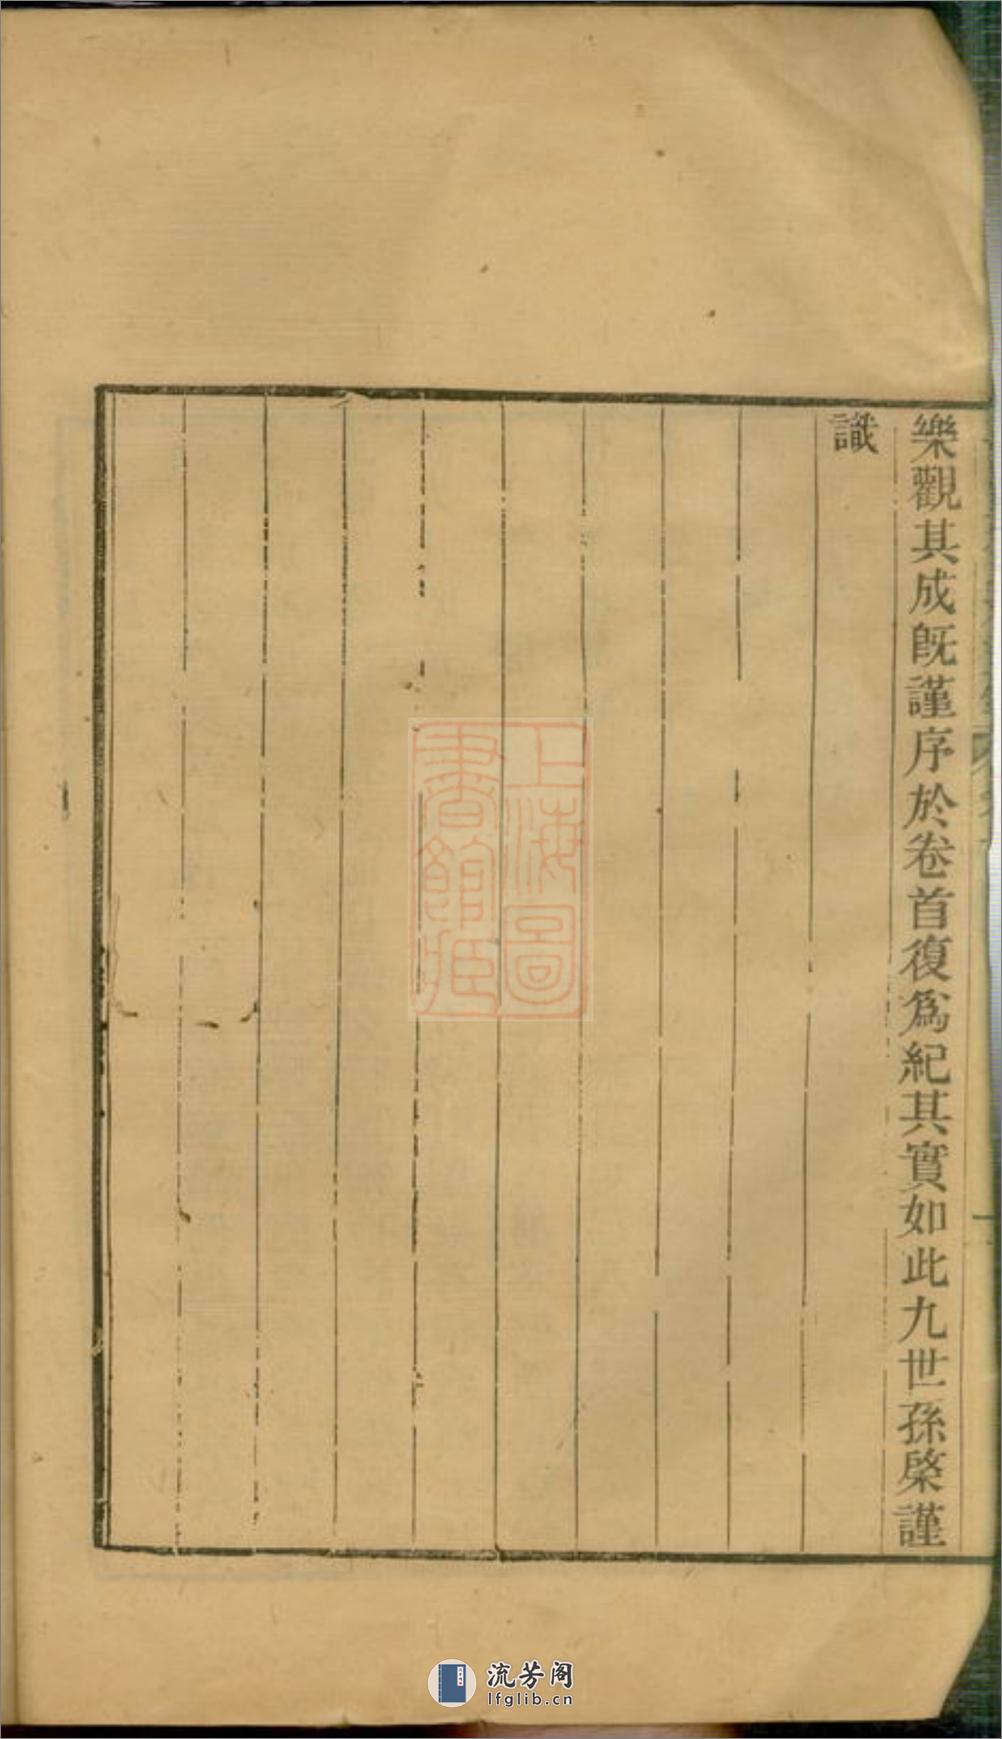 樂觀其成既謹序於卷首復爲紀其實如此九世孫棨謹
識
上海圖
書館藏
流芳阁
lfglib.cn